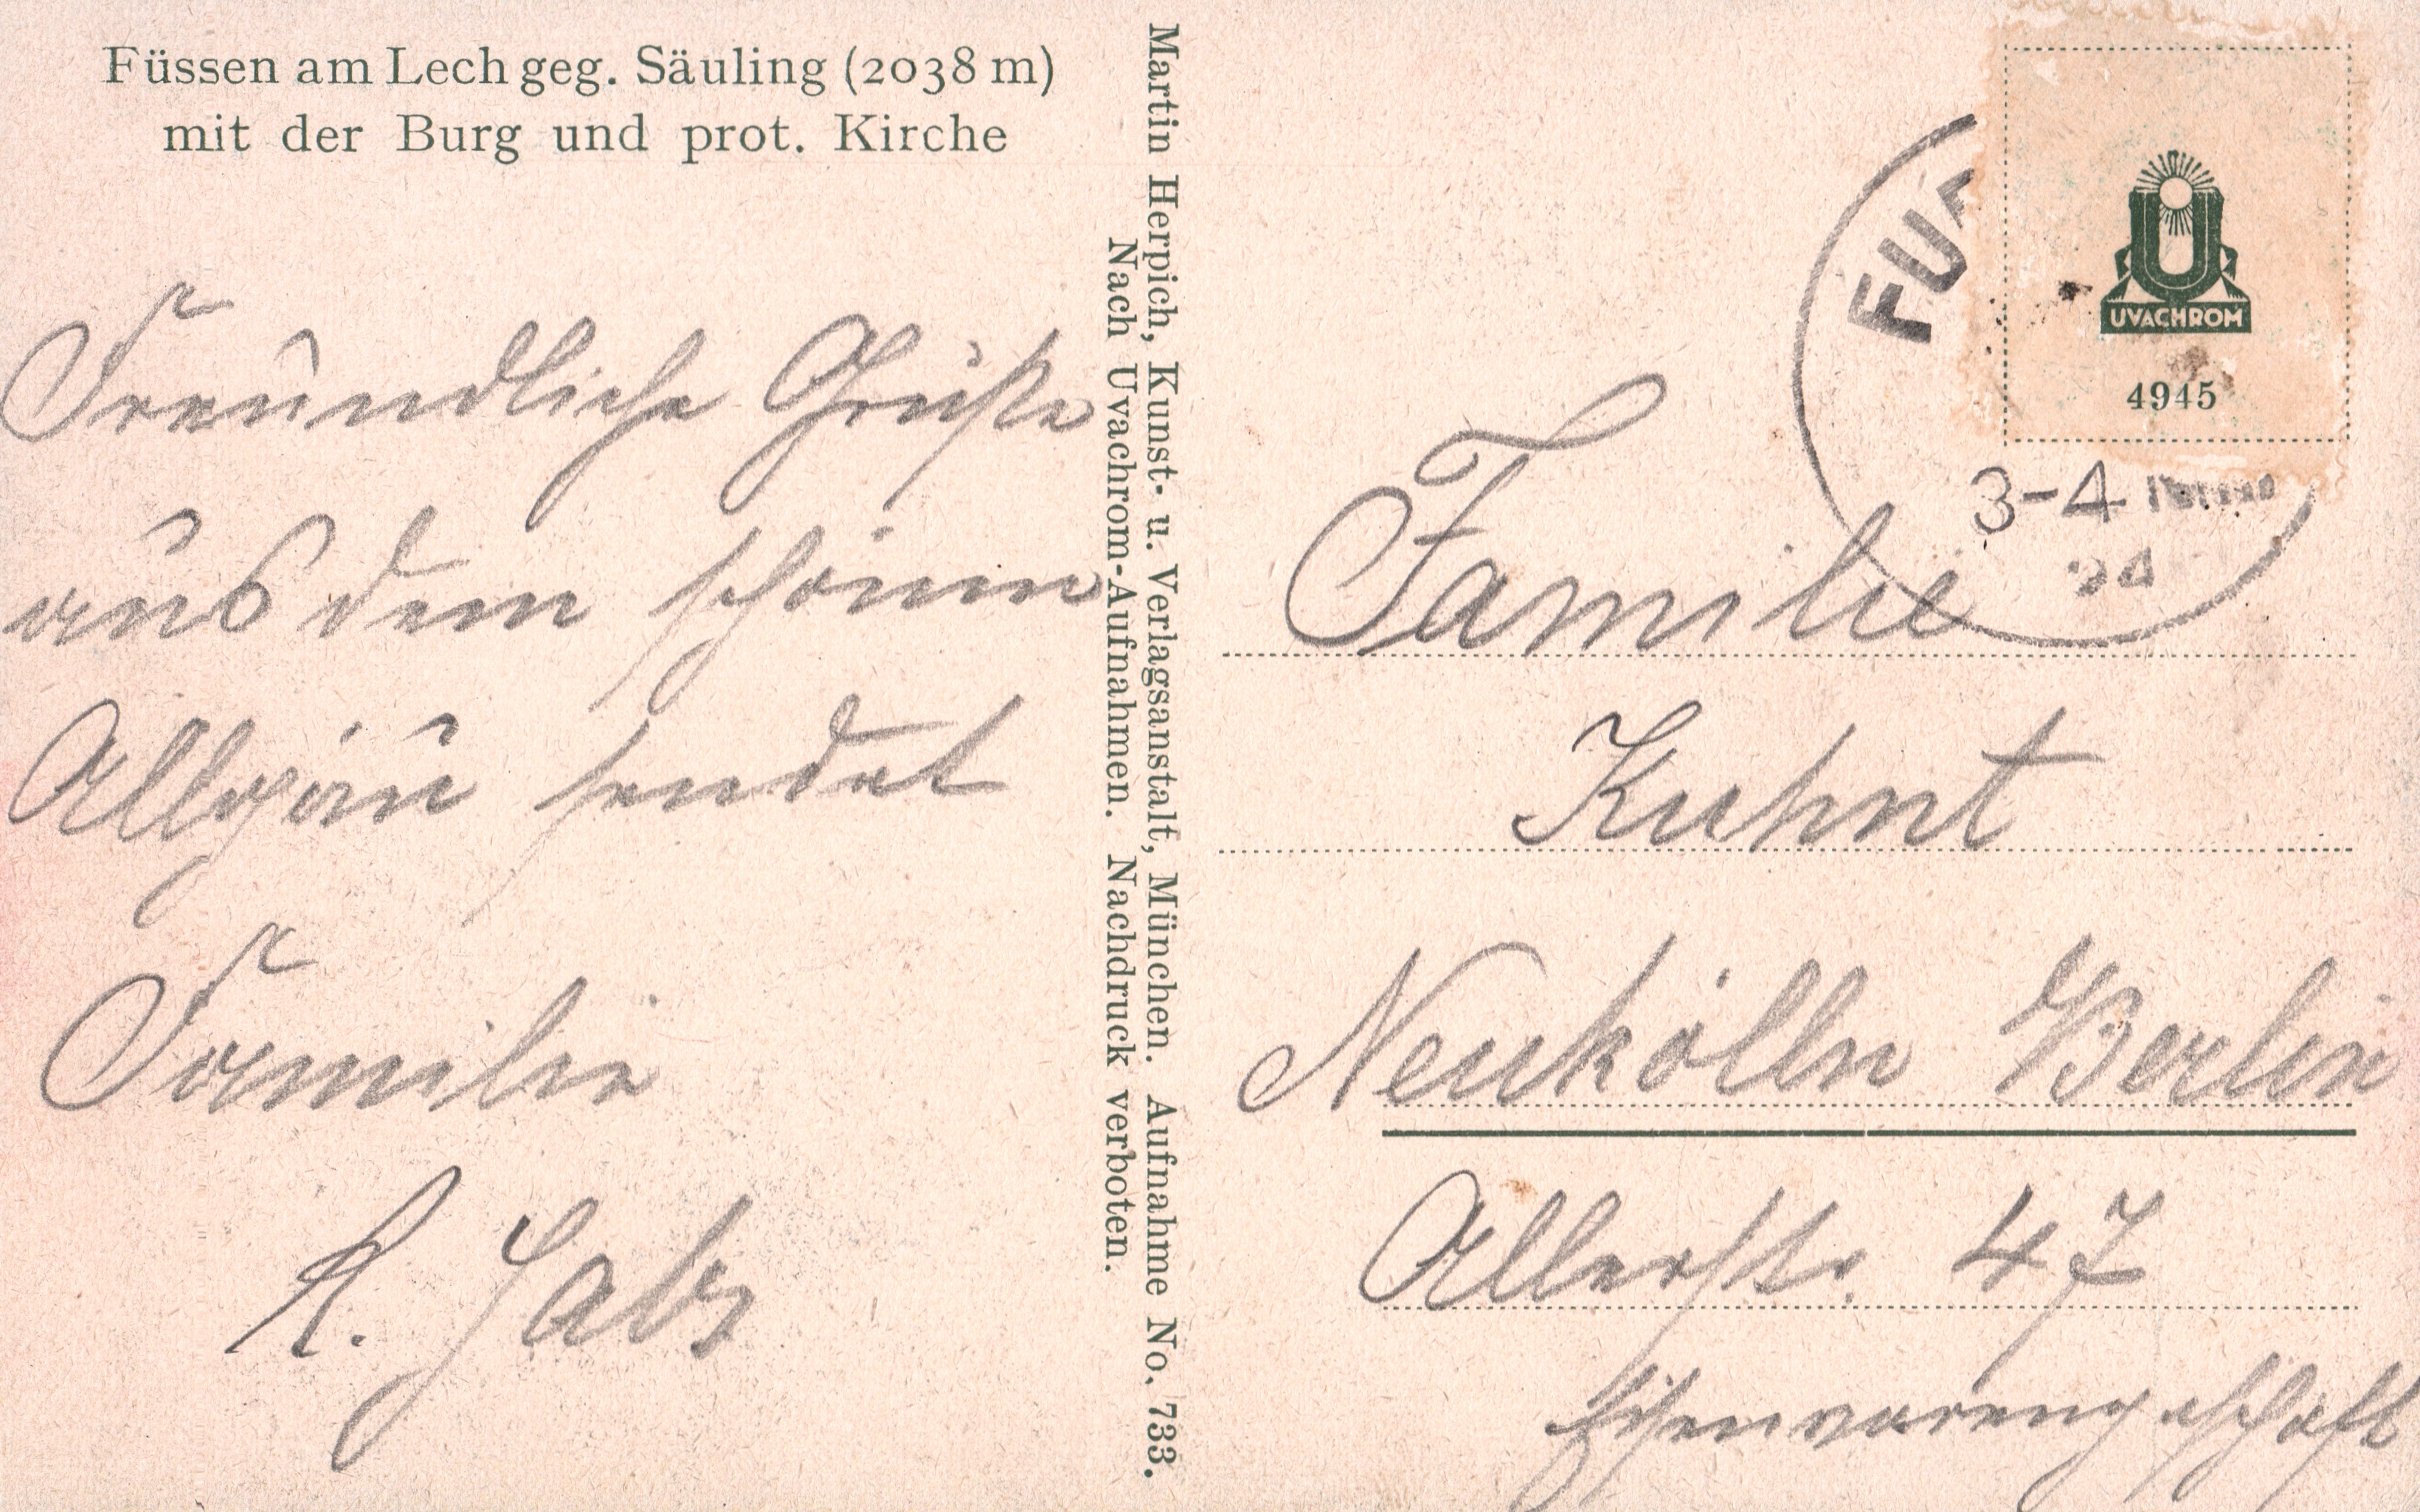 Füssen am Lech geg. Säuling (2038 m)
mit der Burg und prot. Kirche
Freundliche Grüße
aus dem schönen
Allgäu sendet
Familie
Martin Herpich, Kunst- u. Verlagsanstalt, München. Aufnahme No. 733.
Nach Uvachrom-Aufnahmen. Nachdruck verboten.
UVACHROM
4945
3-4
Familie
Kuhnt
Neukölln Berlin
Allerstr. 47
Eisenwarengeschäft